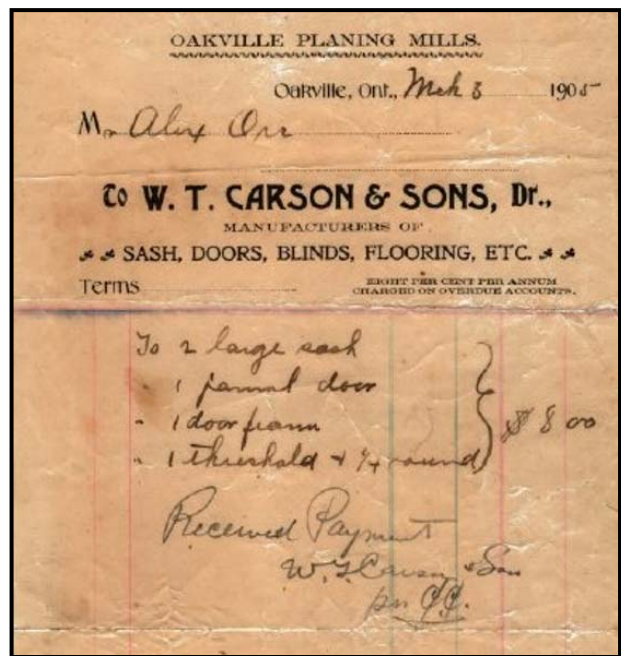 OAKVILLE PLANING MILLS.
Oakville, Ont., Mch 3 1905
Mr Alex Orr
To W. T. CARSON & SONS, Dr.,
MANUFACTURERS OF
SASH, DOORS, BLINDS, FLOORING, ETC.
Terms
EIGHT PER CENT PER ANNUM
CHARGED ON OVERDUE ACCOUNTS.
To 2 large sash
" 1 pannel door
" 1 door frame
" 1 threshold + 1/4 round
$ 8 00
Received Payment
W. T. Carson & Son
per